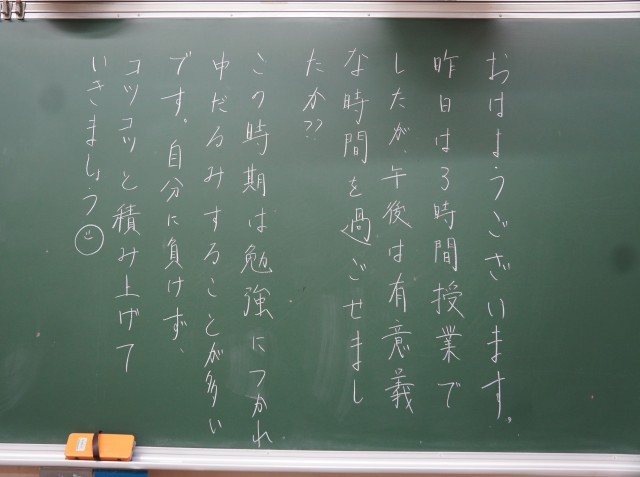 おはようございます。
昨日は3時間授業で
したが、午後は有意義
な時間を過ごせまし
たか??
この時期は勉強につかれ
中だるみすることが多い
です。自分に負けず、
コツコツと積み上げて
いきましょう